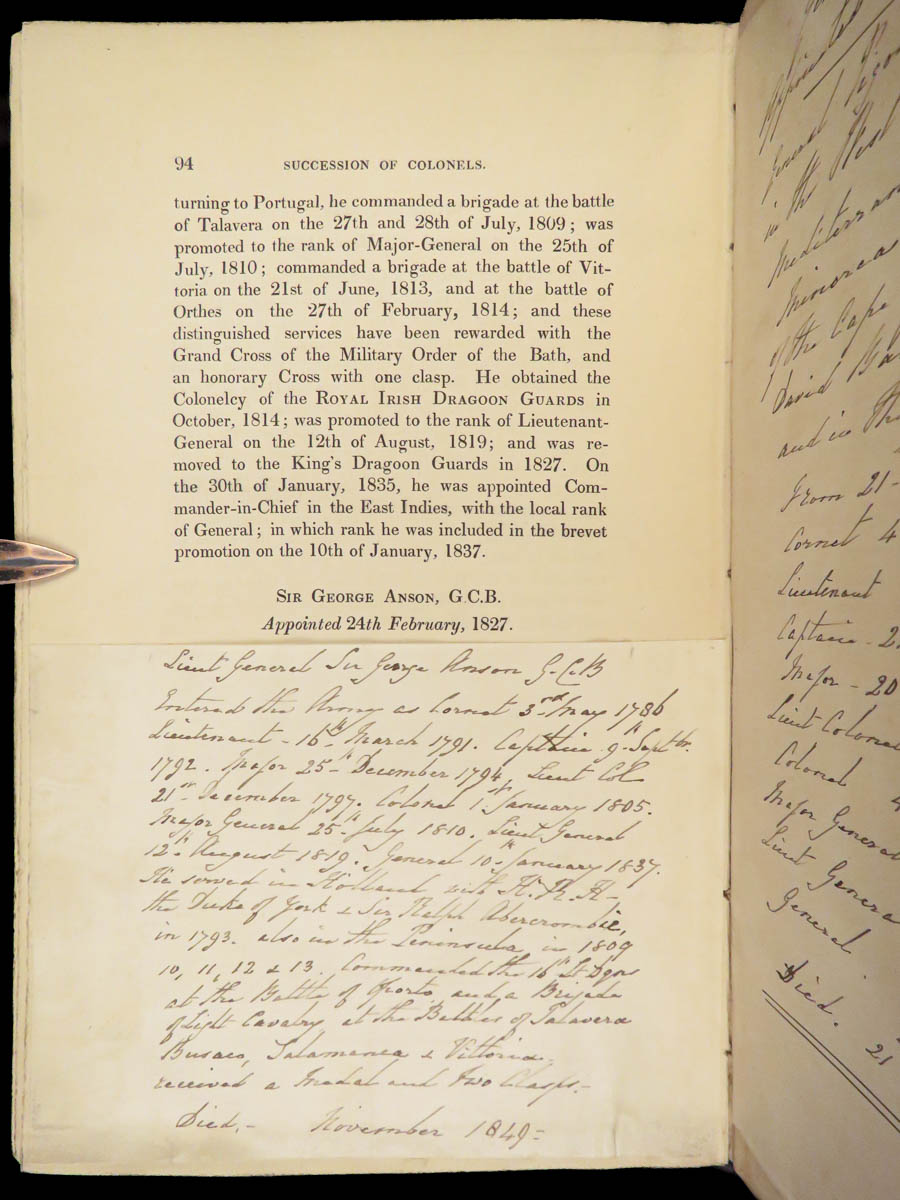 94 SUCCESSION OF COLONELS.
turning to Portugal, he commanded a brigade at the battle
of Talavera on the 27th and 28th of July, 1809; was
promoted to the rank of Major-General on the 25th of
July, 1810; commanded a brigade at the battle of Vit-
toria on the 21st of June, 1813, and at the battle of
Orthes on the 27th of February, 1814; and these
distinguished services have been rewarded with the
Grand Cross of the Military Order of the Bath, and
an honorary Cross with one clasp. He obtained the
Colonelcy of the ROYAL IRISH DRAGOON GUARDS in
October, 1814; was promoted to the rank of Lieutenant-
General on the 12th of August, 1819; and was re-
moved to the King's Dragoon Guards in 1827. On
the 30th of January, 1835, he was appointed Com-
mander-in-Chief in the East Indies, with the local rank
of General; in which rank he was included in the brevet
promotion on the 10th of January, 1837.
SIR GEORGE ANSON, G.C.B.
Appointed 24th February, 1827.
Lieut General Sir George Anson G.C.B
Entered the Army as Cornet 3rd May 1786
Lieutenant - 16th March 1791. Captain 9th Septbr.
1792. Major 25th December 1794, Lieut Col
21st December 1797. Colonel 1st January 1805.
Major General 25th July 1810. Lieut General
12th August 1819. General 10th January 1837.
He served in Holland with H.R.H-
the Duke of York & Sir Ralph Abercrombie,
in 1793. also in the Peninsula, in 1809
10, 11, 12 & 13. Commanded the 16th Lt Dgns
at the Battle of Oporto, and a Brigade
of Light Cavalry at the Battles of Talavera
Busaco, Salamanca & Vittoria.
received a Medal and Two Clasps.-
Died.- November 1849=
General
in the West
Mediterranean
Minorca
of the Cape
David
and in the
From 21-
Cornet 4
Lieutenant
Captain - 2
Major - 20
Lieut Colonel
Colonel 4
Major General
Lieut General
General
Died.
21